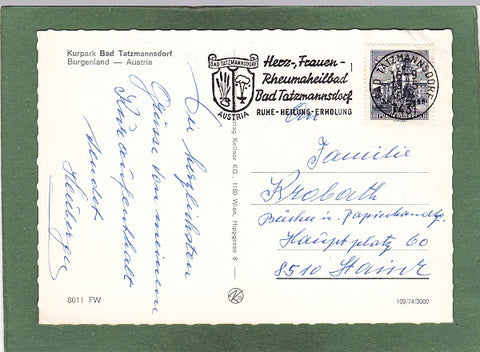 Kurpark Bad Tatzmannsdorf
Burgenland — Austria
Die herzlichsten
Grüsse von meinem
Kuraufenthalt
sendet
Heuberger
8011 FW
Verlag Kellner KG., 1160 Wien, Hippgasse 8
BAD TATZMANNSDORF
AUSTRIA
Herz-, Frauen-
Rheumaheilbad
Bad Tatzmannsdorf
RUHE-HEILUNG-ERHOLUNG
BAD TATZMANNSDORF
7431
An
Familie
Krobath
Bücher u. Papierhandlg.
Hauptplatz 60
8510 Stainz
109/74/3000